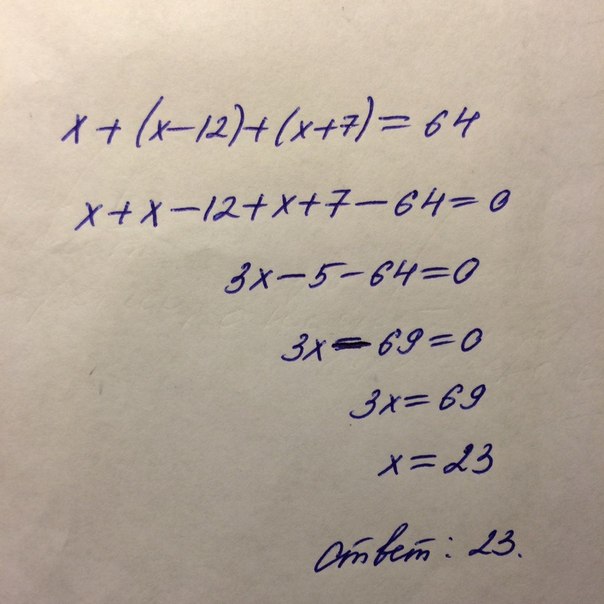 x+(x-12)+(x+7)=64
x+x-12+x+7-64=0
3x-5-64=0
3x-69=0
3x=69
x=23
Ответ: 23.